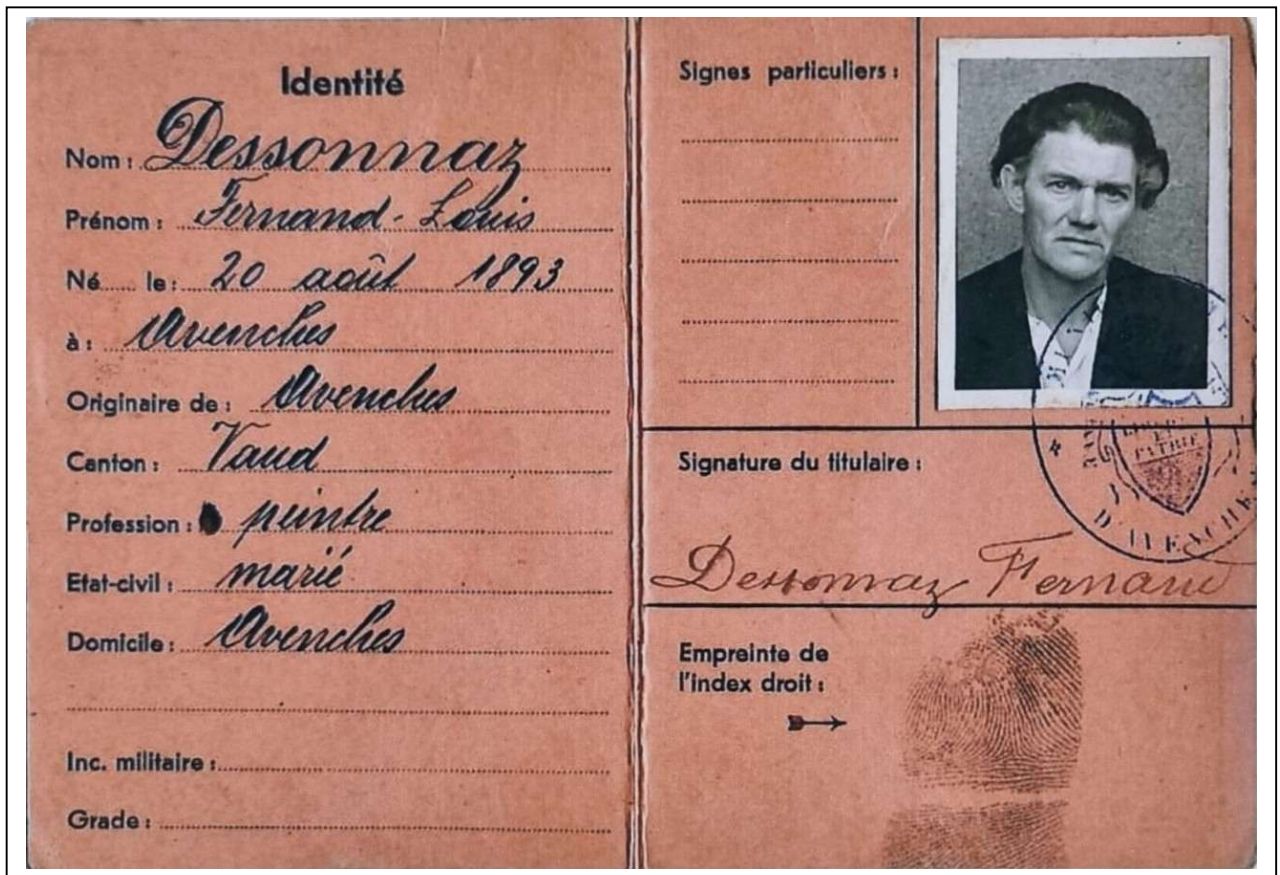 Identité
Nom : Dessonnaz
Prénom : Fernand-Louis
Né le : 20 août 1893
à : Avenches
Originaire de : Avenches
Canton : Vaud
Profession : peintre
Etat-civil : marié
Domicile : Avenches
Inc. militaire :
Grade :
Signes particuliers :
LIBERTÉ
ET
PATRIE
D'AVENCHES
Signature du titulaire :
Dessonnaz Fernand
Empreinte de
l'index droit :